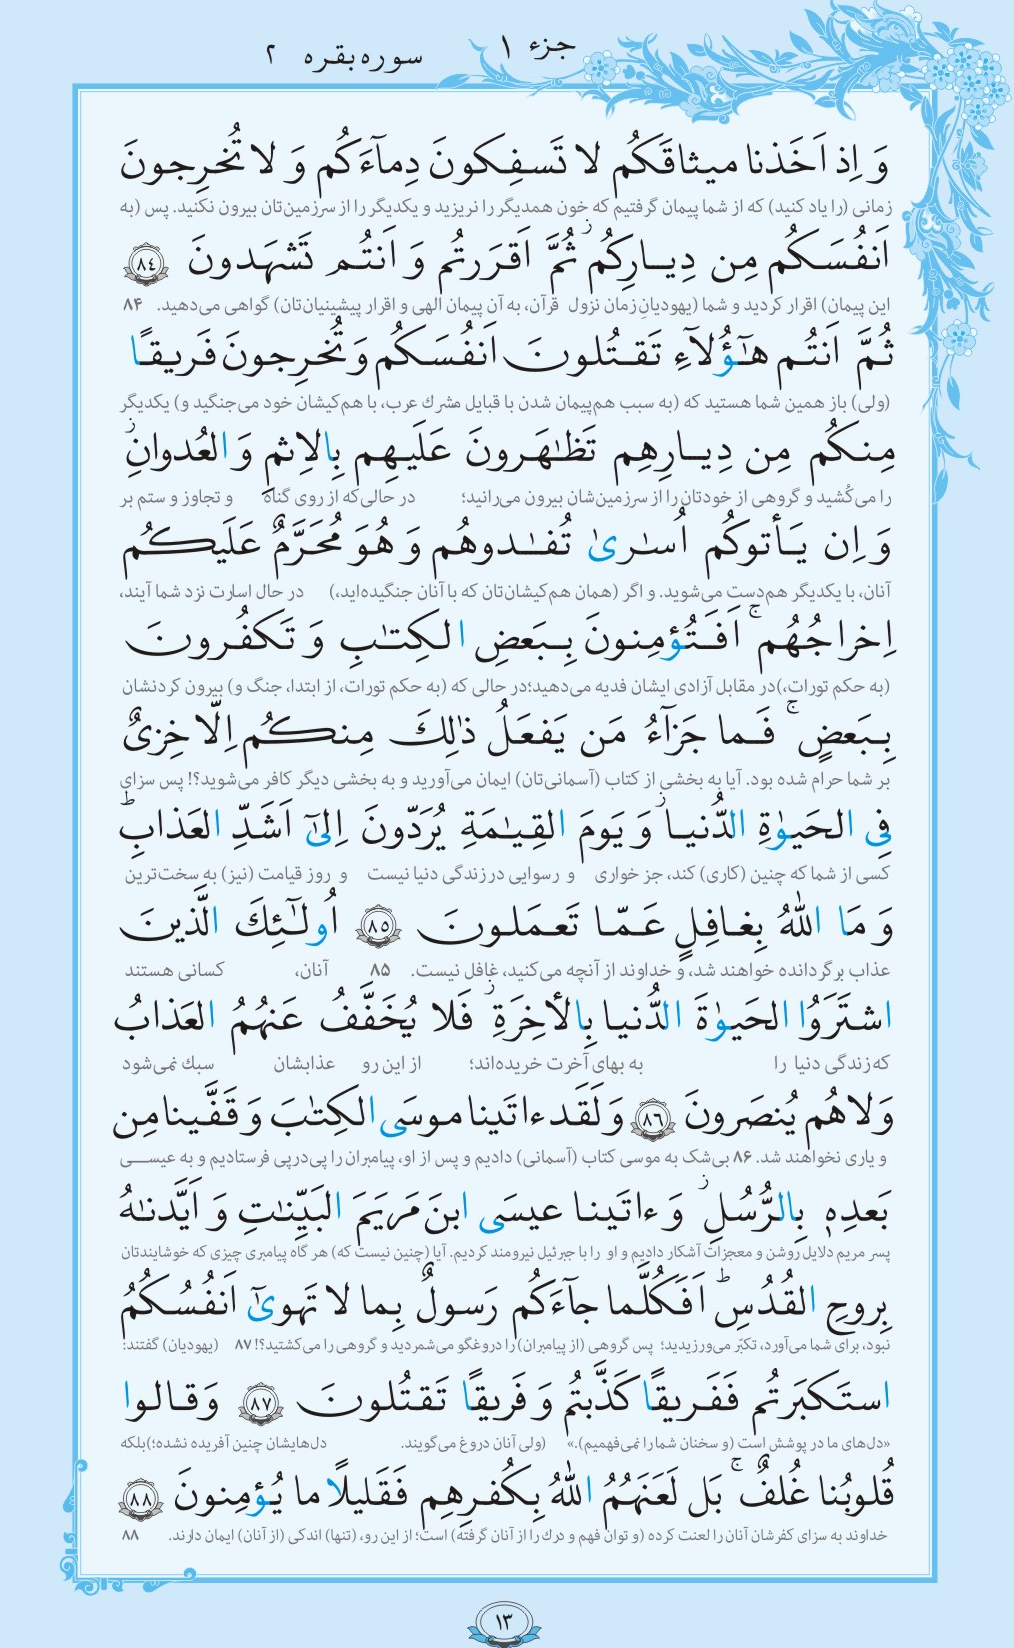 جزء ۱
سوره بقره ۲
وَ اِذ اَخَذنا ميثاقَكُم لا تَسفِكونَ دِمآءَكُم وَ لا تُخرِجونَ
زمانی (را یاد کنید) که از شما پیمان گرفتیم که خون همدیگر را نریزید و یکدیگر را از سرزمین‌تان بیرون نکنید. پس (به
اَنفُسَكُم مِن دِيارِكُم ۫ ثُمَّ اَقرَرتُم وَ اَنتُم تَشهَدونَ ﴿٨٤﴾
این پیمان) اقرار کردید و شما (یهودیانِ زمان نزول قرآن، به آن پیمان الهی و اقرار پیشینیان‌تان) گواهی می‌دهید. ۸۴
ثُمَّ اَنتُم هـٰٓؤُلآءِ تَقتُلونَ اَنفُسَكُم وَ تُخرِجونَ فَريقًا
(ولی) باز همین شما هستید که (به سبب هم‌پیمان شدن با قبایل مشرك عرب، با هم‌کیشان خود می‌جنگید و) یکدیگر
مِنكُم مِن دِيارِهِم تَظـٰهَرونَ عَلَيهِم بِالاِثمِ وَ العُدوانِ ز
را می‌کُشید و گروهی از خودتان را از سرزمین‌شان بیرون می‌رانید؛ در حالی‌که از روی گناه و تجاوز و ستم بر
وَ اِن يَأتوكُم اُسـٰرىٰ تُفـٰدوهُم وَ هُوَ مُحَرَّمٌ عَلَيكُم
آنان، با یکدیگر هم‌دست می‌شوید. و اگر (همان هم‌کیشان‌تان که با آنان جنگیده‌اید،) در حال اسارت نزد شما آیند،
اِخراجُهُم ۚ اَفَتُؤمِنونَ بِبَعضِ الكِتـٰبِ وَ تَكفُرونَ
(به حکم تورات،) در مقابل آزادی ایشان فدیه می‌دهید؛ در حالی که (به حکم تورات، از ابتدا، جنگ و) بیرون کردنشان
بِبَعضٍ ۚ فَما جَزآءُ مَن يَفعَلُ ذٰلِكَ مِنكُم اِلّا خِزىٌ
بر شما حرام شده بود. آیا به بخشی از کتاب (آسمانی‌تان) ایمان می‌آورید و به بخشی دیگر کافر می‌شوید؟! پس سزای
فِى الحَيوٰةِ الدُّنيا ز وَ يَومَ القِيـٰمَةِ يُرَدّونَ اِلىٰٓ اَشَدِّ العَذابِ ط
کسی از شما که چنین (کاری) کند، جز خواری و رسوایی در زندگی دنیا نیست و روز قیامت (نیز) به سخت‌ترین
وَ مَا اللّٰهُ بِغافِلٍ عَمّا تَعمَلونَ ﴿٨٥﴾ اُولـٰٓئِكَ الَّذينَ
عذاب برگردانده خواهند شد، و خداوند از آنچه می‌کنید، غافل نیست. ۸۵ آنان، کسانی هستند
اشتَرَوُا الحَيوٰةَ الدُّنيا بِالأخِرَةِ ز فَلا يُخَفَّفُ عَنهُمُ العَذابُ
که زندگی دنیا را به بهای آخرت خریده‌اند؛ از این رو عذابشان سبك نمی‌شود
وَلاهُم يُنصَرونَ ﴿٨٦﴾ وَ لَقَد ءاتَينا موسَى الكِتـٰبَ وَ قَفَّينا مِن
و یاری نخواهند شد. ۸۶ بی‌شک به موسی کتاب (آسمانی) دادیم و پس از او، پیامبران را پی‌درپی فرستادیم و به عیســی
بَعدِهٖ بِالرُّسُلِ ز وَ ءاتَينا عيسَى ابنَ مَريَمَ البَيِّنـٰتِ وَ اَيَّدنـٰهُ
پسر مریم دلایل روشن و معجزات آشکار دادیم و او را با جبرئیل نیرومند کردیم. آیا (چنین نیست که) هر گاه پیامبری چیزی که خوشایندتان
بِروحِ القُدُسِ ط اَفَكُلَّما جآءَكُم رَسولٌ بِما لا تَهوىٰٓ اَنفُسُكُمُ
نبود، برای شما می‌آورد، تکبّر می‌ورزیدید؛ پس گروهی (از پیامبران) را دروغگو می‌شمردید و گروهی را می‌کشتید؟! ۸۷ (یهودیان) گفتند:
استَكبَرتُم فَفَريقًا كَذَّبتُم وَ فَريقًا تَقتُلونَ ﴿٨٧﴾ وَقالوا
«دل‌های ما در پوشش است (و سخنان شما را نمی‌فهمیم).» (ولی آنان دروغ می‌گویند. دل‌هایشان چنین آفریده نشده؛) بلکه
قُلوبُنا غُلفٌ ۚ بَل لَعَنَهُمُ اللّٰهُ بِكُفرِهِم فَقَليلًا ما يُؤمِنونَ ﴿٨٨﴾
خداوند به سزای کفرشان آنان را لعنت کرده (و توان فهم و درك را از آنان گرفته) است؛ از این رو، (تنها) اندکی (از آنان) ایمان دارند. ۸۸
۱۳